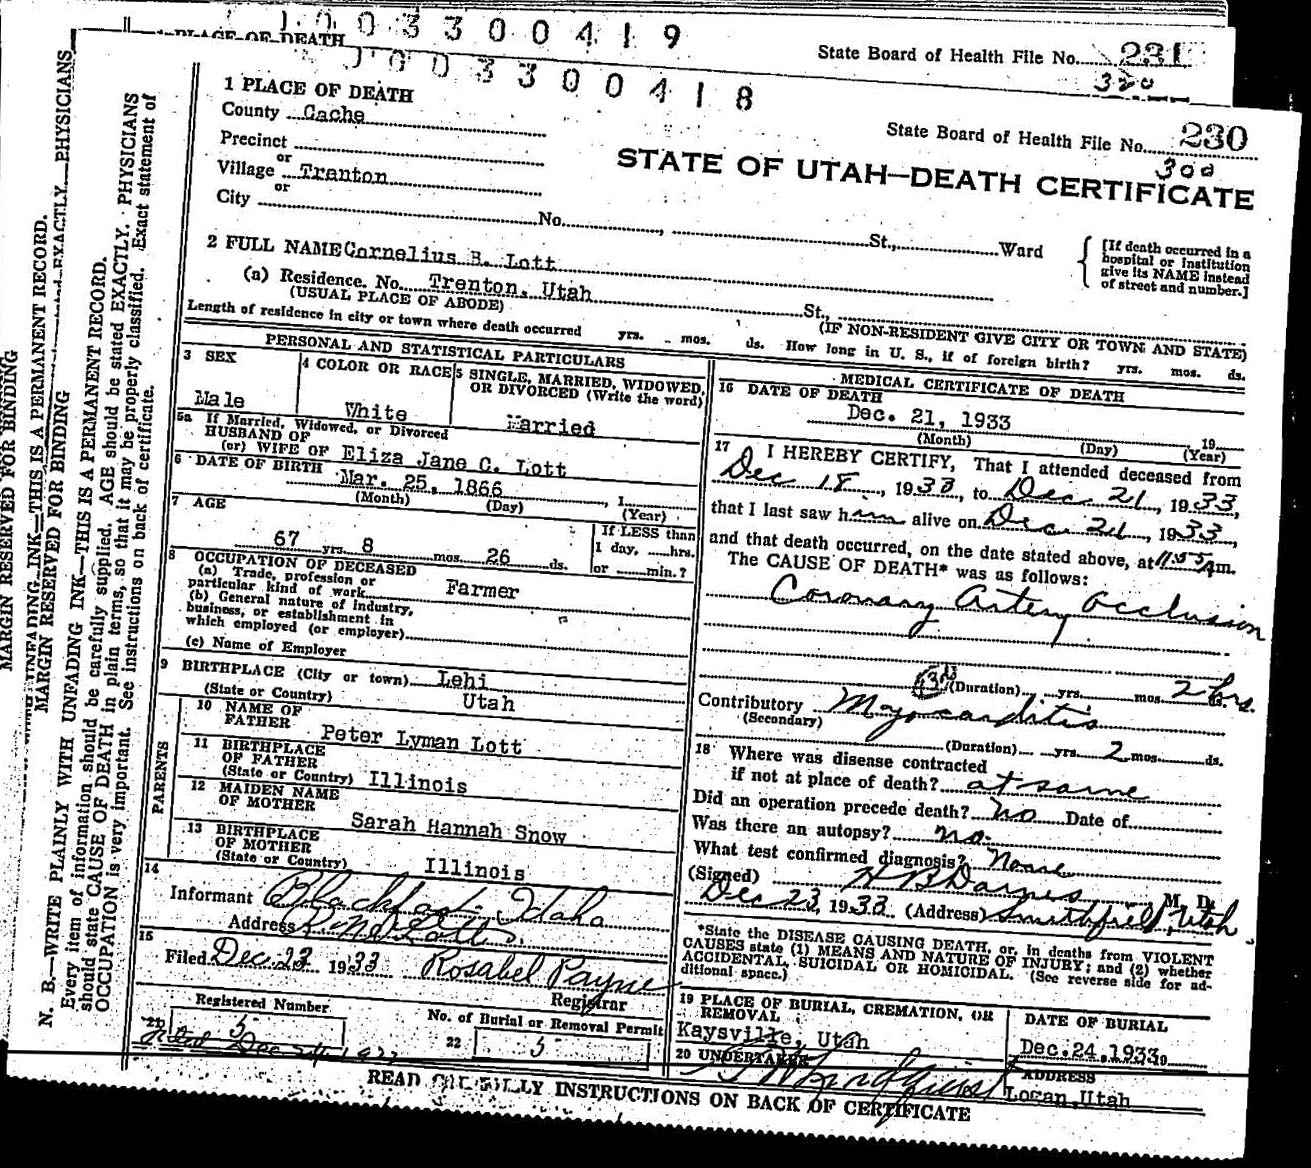 1003300419
1 PLACE OF DEATH
State Board of Health File No. 231
320
1003300418
State Board of Health File No. 230
300
STATE OF UTAH—DEATH CERTIFICATE
1 PLACE OF DEATH
County Cache
Precinct
or
Village Tranton
or
City No. St., Ward
[If death occurred in a
hospital or institution
give its NAME instead
of street and number.]
2 FULL NAME Cornelius B. Lott
(a) Residence. No. Trenton, Utah St.,
(USUAL PLACE OF ABODE) (IF NON-RESIDENT GIVE CITY OR TOWN AND STATE)
Length of residence in city or town where death occurred yrs. mos. ds. How long in U. S., if of foreign birth? yrs. mos. ds.
PERSONAL AND STATISTICAL PARTICULARS
3 SEX
Male
4 COLOR OR RACE
White
5 SINGLE, MARRIED, WIDOWED,
OR DIVORCED (Write the word)
Married
5a If Married, Widowed, or Divorced
HUSBAND OF
(or) WIFE OF Eliza Jane C. Lott
6 DATE OF BIRTH Mar. 25, 1866, 1
(Month) (Day) (Year)
7 AGE
67 yrs. 8 mos. 26 ds.
If LESS than
1 day, hrs.
or min.?
8 OCCUPATION OF DECEASED
(a) Trade, profession or
particular kind of work Farmer
(b) General nature of industry,
business, or establishment in
which employed (or employer)
(c) Name of Employer
9 BIRTHPLACE (City or town) Lehi
(State or Country) Utah
PARENTS
10 NAME OF
FATHER Peter Lyman Lott
11 BIRTHPLACE
OF FATHER
(State or Country) Illinois
12 MAIDEN NAME
OF MOTHER
Sarah Hannah Snow
13 BIRTHPLACE
OF MOTHER
(State or Country) Illinois
14
Informant Blackfoot Idaho
Address Lott
15
Filed Dec. 23 1933 Rosabel Payne
Registrar
Registered Number
21 5
No. of Burial or Removal Permit
22 5
MEDICAL CERTIFICATE OF DEATH
16 DATE OF DEATH
Dec. 21, 1933 19
(Month) (Day) (Year)
17 I HEREBY CERTIFY, That I attended deceased from
Dec 18, 1933, to Dec 21, 1933,
that I last saw him alive on Dec 21, 1933,
and that death occurred, on the date stated above, at 11.55 Am.
The CAUSE OF DEATH* was as follows:
Coronary Artery Occlusion
(Duration) yrs. mos. 2 hrs. ds.
Contributory Myocarditis
(Secondary)
(Duration) yrs. 2 mos. ds.
18 Where was disease contracted
if not at place of death? at same
Did an operation precede death? No Date of
Was there an autopsy? no.
What test confirmed diagnosis? None
(Signed) M. D.
Dec 23, 1933 (Address) Smithfield, Utah
*State the DISEASE CAUSING DEATH, or, in deaths from VIOLENT
CAUSES state (1) MEANS AND NATURE OF INJURY; and (2) whether
ACCIDENTAL, SUICIDAL OR HOMICIDAL. (See reverse side for ad-
ditional space.)
19 PLACE OF BURIAL, CREMATION, OR
REMOVAL
Kaysville, Utah
DATE OF BURIAL
Dec. 24, 1933 19
20 UNDERTAKER
ADDRESS
Logan, Utah
READ CAREFULLY INSTRUCTIONS ON BACK OF CERTIFICATE
MARGIN RESERVED FOR BINDING
UNFADING INK—THIS IS A PERMANENT RECORD. EXACTLY. PHYSICIANS
MARGIN RESERVED FOR BINDING
N. B.—WRITE PLAINLY WITH UNFADING INK—THIS IS A PERMANENT RECORD.
Every item of information should be carefully supplied. AGE should be stated EXACTLY. PHYSICIANS
should state CAUSE OF DEATH in plain terms, so that it may be properly classified. Exact statement of
OCCUPATION is very important. See instructions on back of certificate.